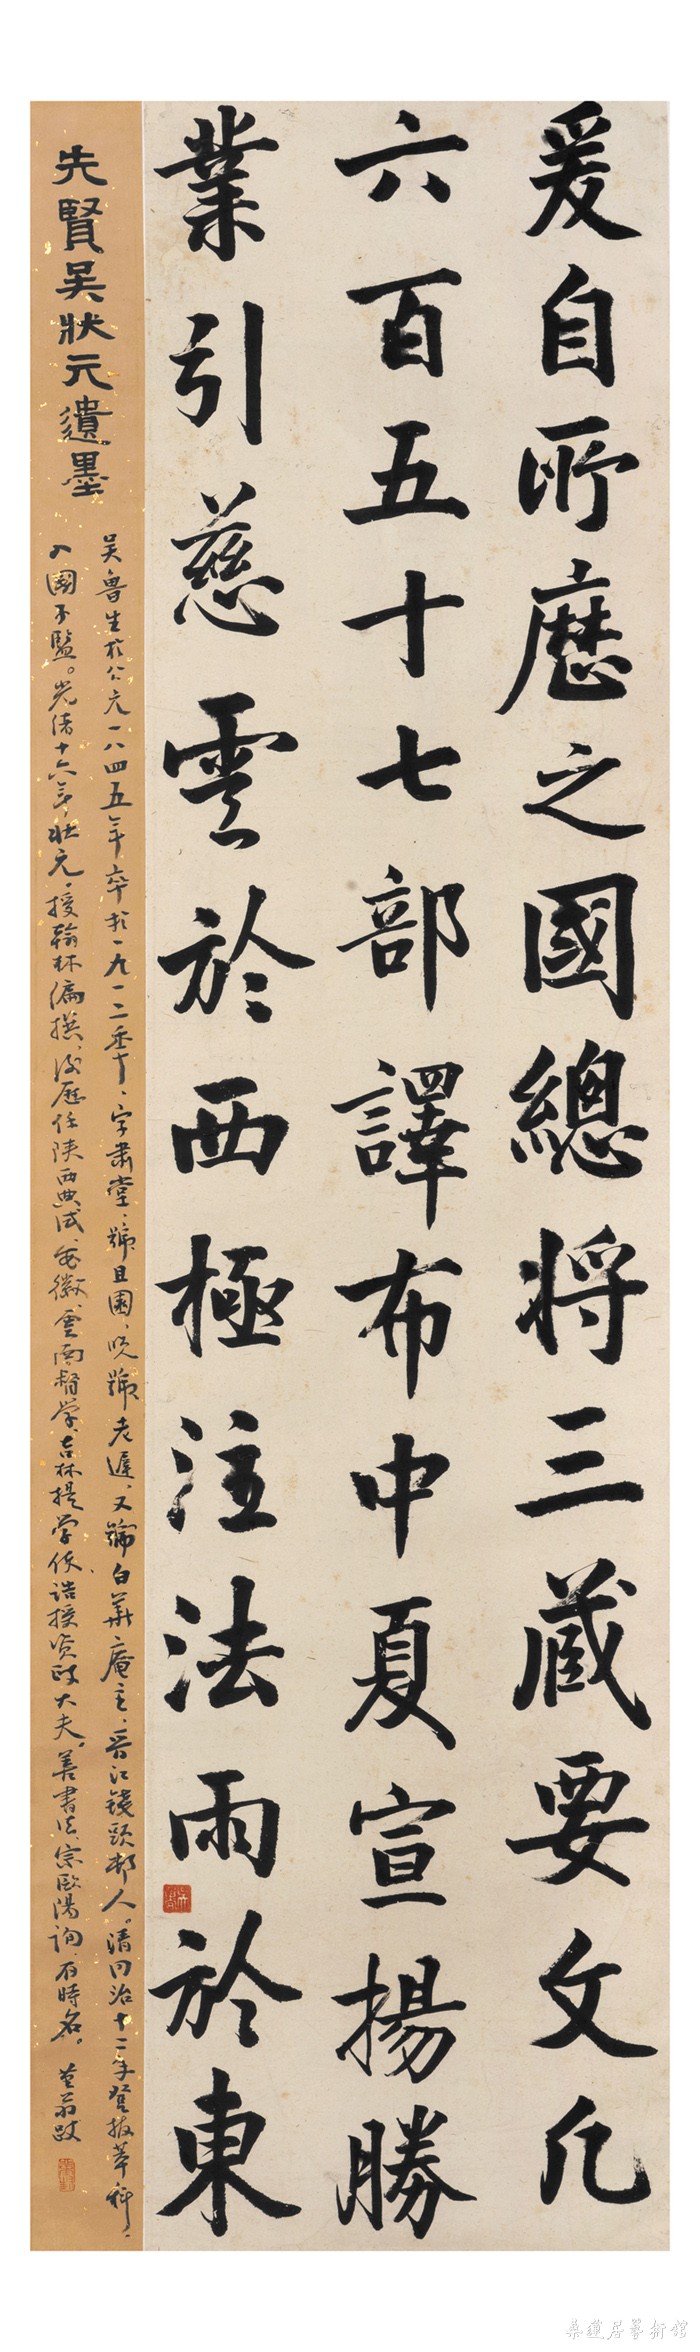 爰自所歷之國總將三藏要文凡
六百五十七部譯布中夏宣揚勝
業引慈雲於西極注法雨於東
先賢吳狀元遺墨
吳魯生於公元一八四五年卒於一九一二年、字肅堂、號且園、晚號老遲、又號白華庵主、晉江錢頭村人。清同治十二年登拔萃科、
入國子監。光緒十六年狀元、授翰林編撰、後歷任陝西典試、安徽、雲南督學、吉林提學使、誥授資政大夫。善書法、宗歐陽詢、有時名。
翁跋
桑蓮居藝術館